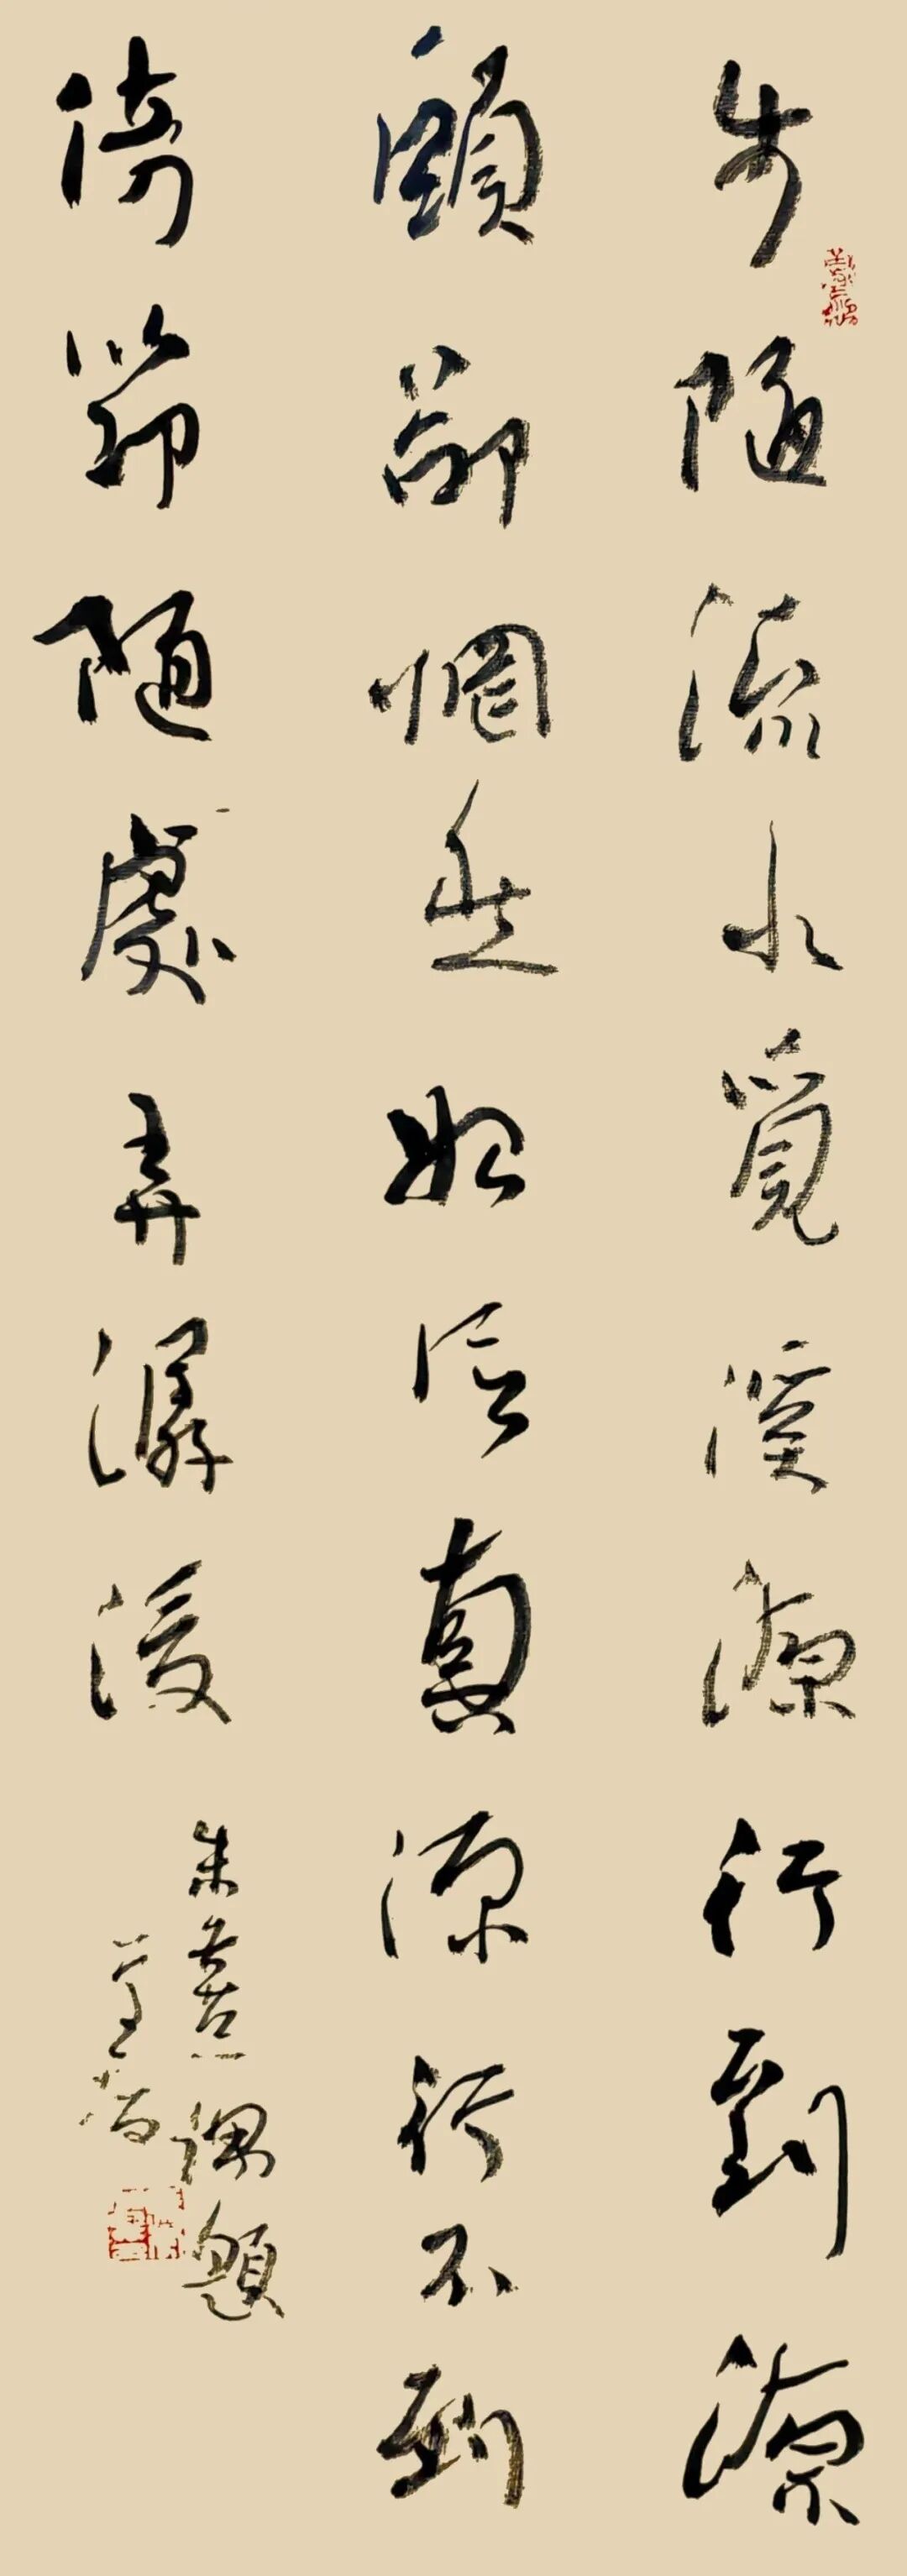 步隨流水覓溪源行到源
頭卻惘然始信真源行不到
倚筇隨處弄潺湲
朱熹偶題